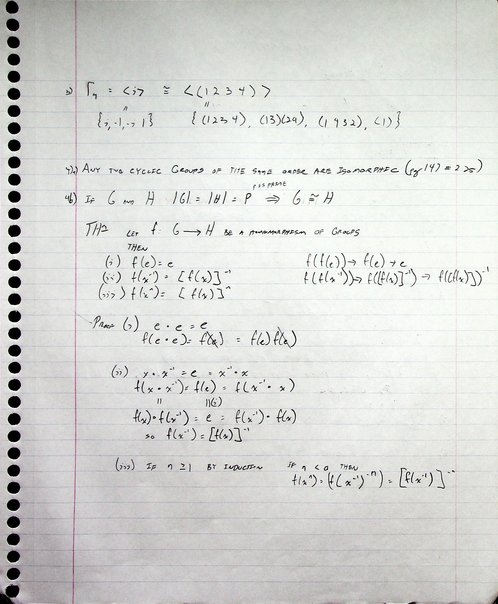 3) Γ₄ = <i> ≅ <(1 2 3 4)>
{i, -1, -i, 1} {(1 2 3 4), (13)(24), (1 4 3 2), (1)}
4a) ANY TWO CYCLIC GROUPS OF THE SAME ORDER ARE ISOMORPHIC (pg 141 # 2 25)
4b) IF G AND H |G| = |H| = P P IS PRIME ⇒ G ≅ H
TH^m LET f: G → H BE A HOMOMORPHISM OF GROUPS
THEN
(i) f(e) = e f(f(e)) → f(e) → e
(ii) f(x⁻¹) = [f(x)]⁻¹ f(f(x⁻¹)) → f([f(x)]⁻¹) → f([f(x)])⁻¹
(iii) f(xⁿ) = [f(x)]ⁿ
PROOF (i) e · e = e
f(e · e) = f(e) = f(e) f(e)
(ii) x · x⁻¹ = e = x⁻¹ · x
f(x · x⁻¹) = f(e) = f(x⁻¹ · x)
|| ||(i)
f(x) · f(x⁻¹) = e = f(x⁻¹) · f(x)
so f(x⁻¹) = [f(x)]⁻¹
(iii) IF n ≥ 1 BY INDUCTION IF n < 0 THEN
f(xⁿ) = (f(x⁻¹)⁻ⁿ) = [f(x⁻¹)]⁻ⁿ